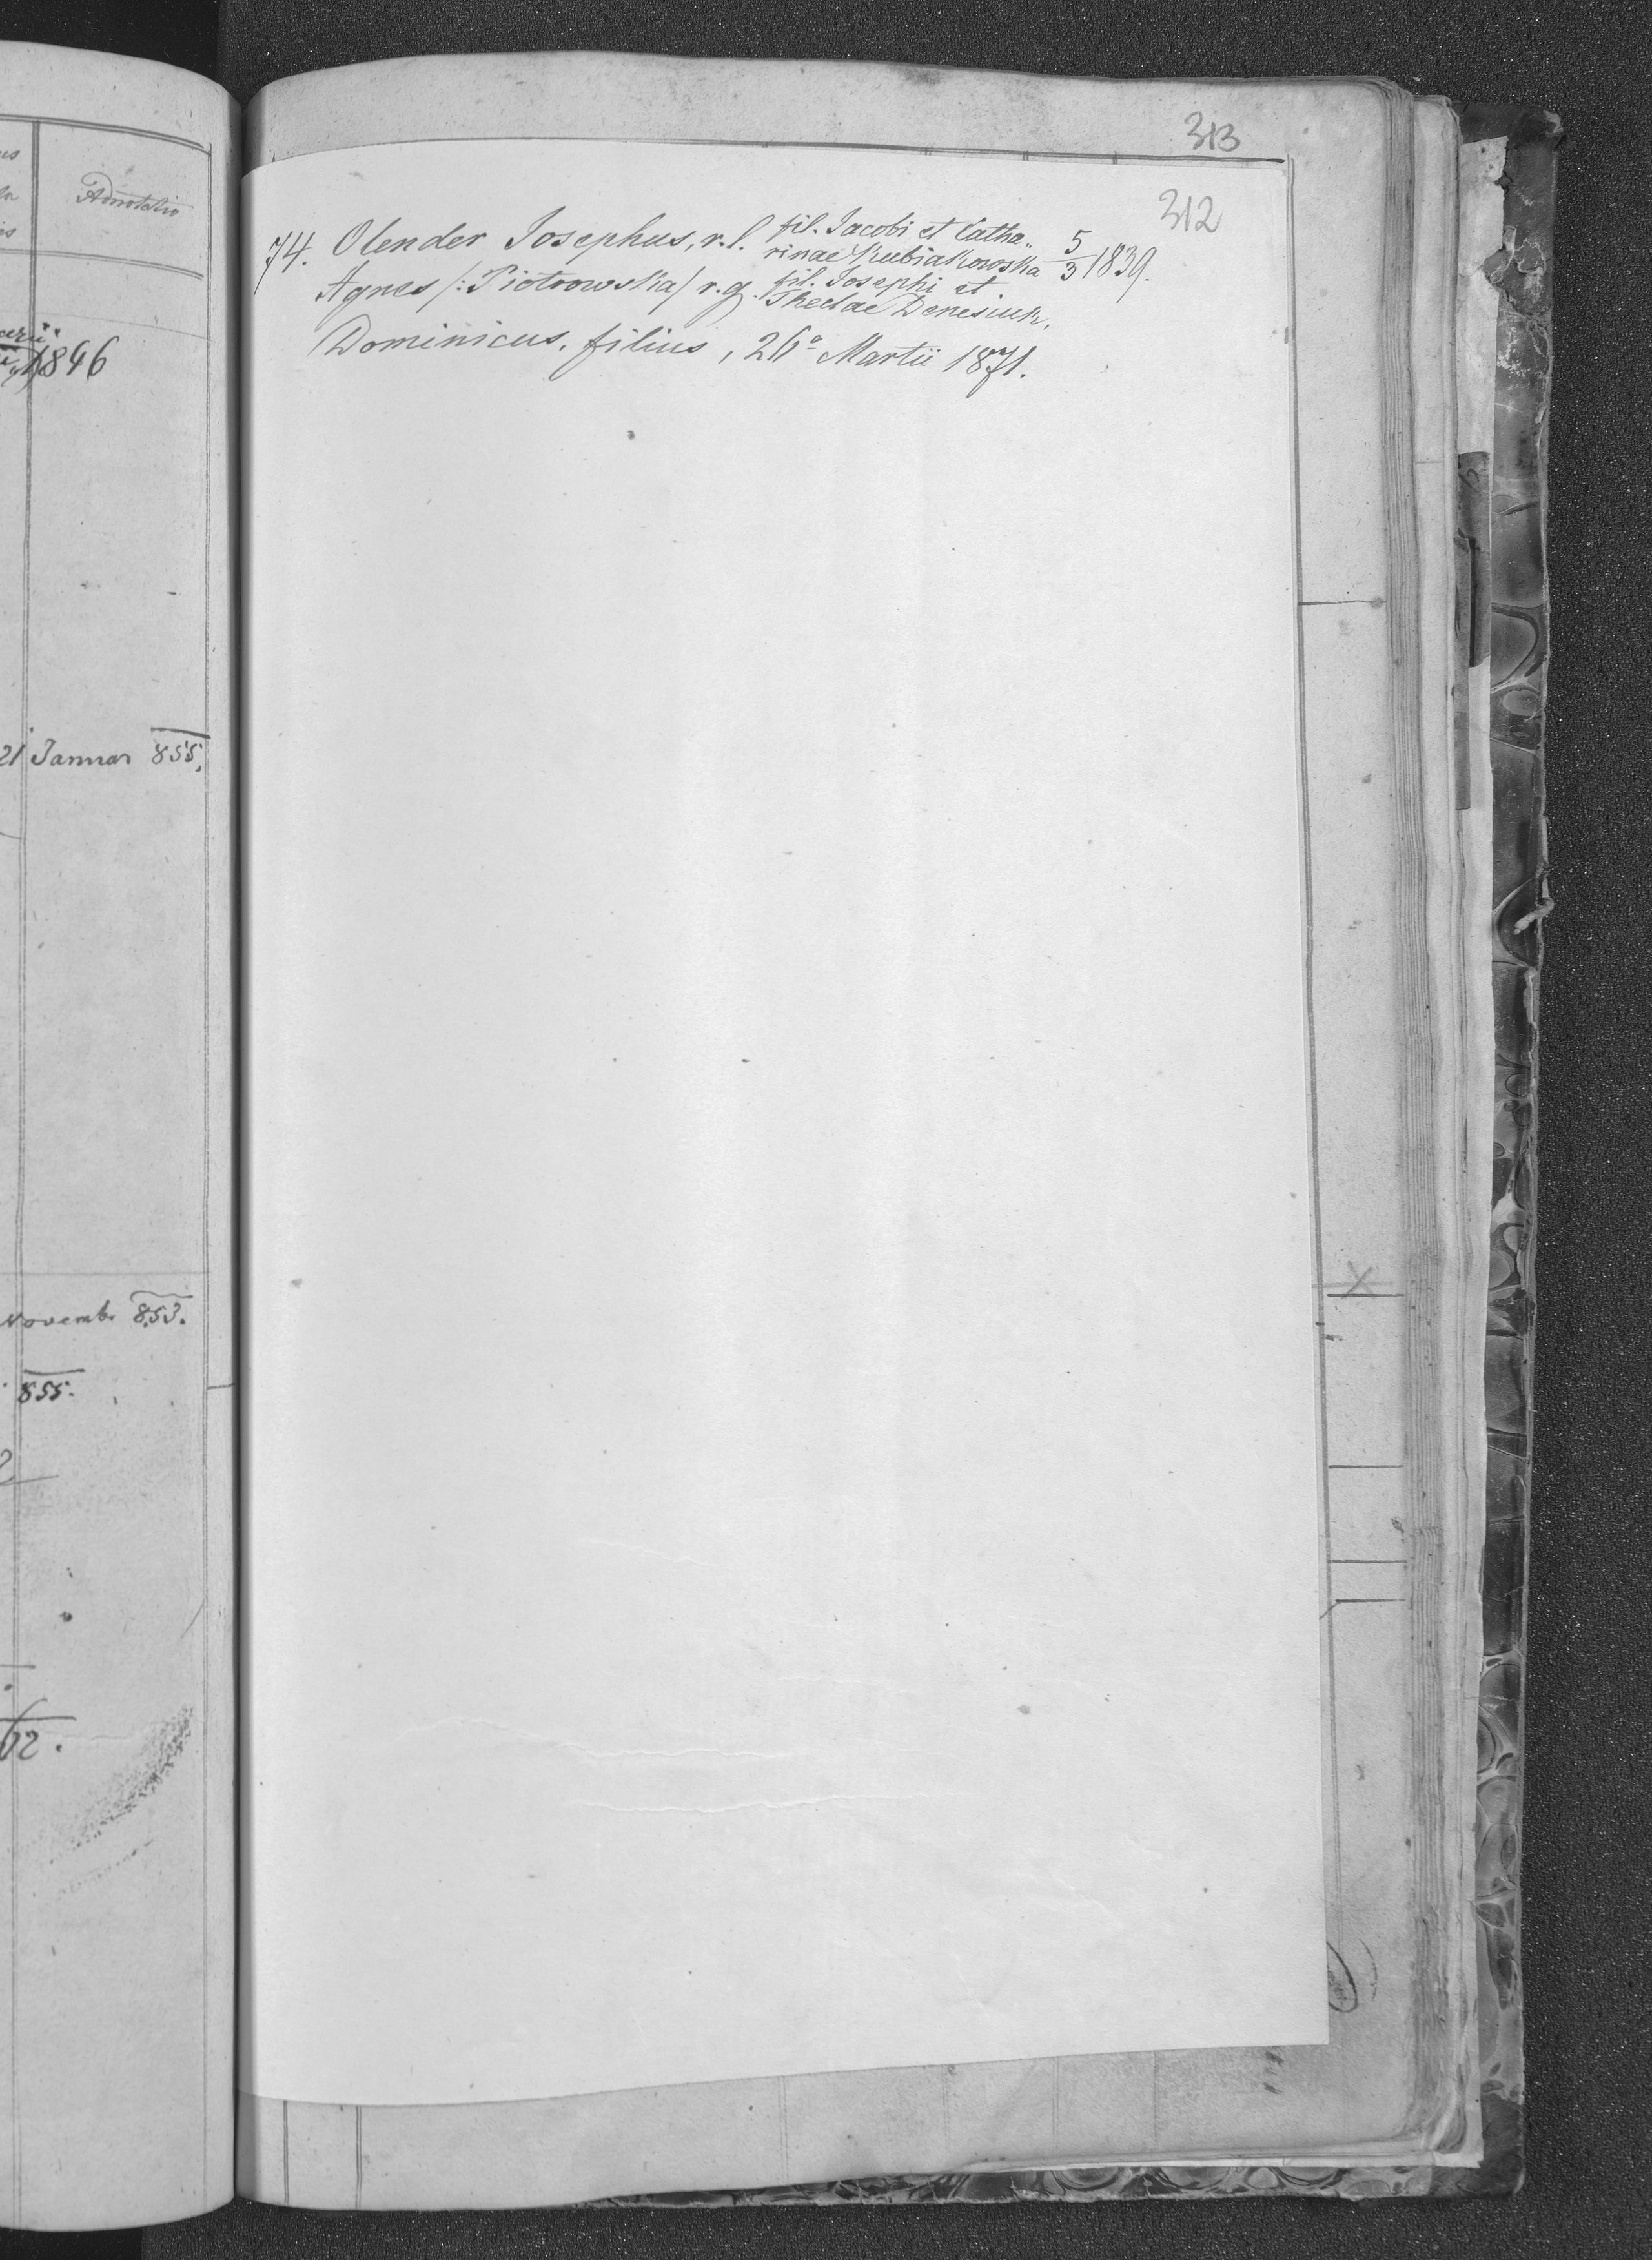 Adnotatio
1846
21 Januar 855.
Novembr 853.
855.
62.
313
312
74. Olender Josephus, r.l. fil. Jacobi et Catha„
rinae Kubiakowska 5/3 1839.
Agnes /: Piotrowska / r.g. fil. Josephi et
Theclae Denesiuk.
Dominicus, filius, 26ª Martii 1871.